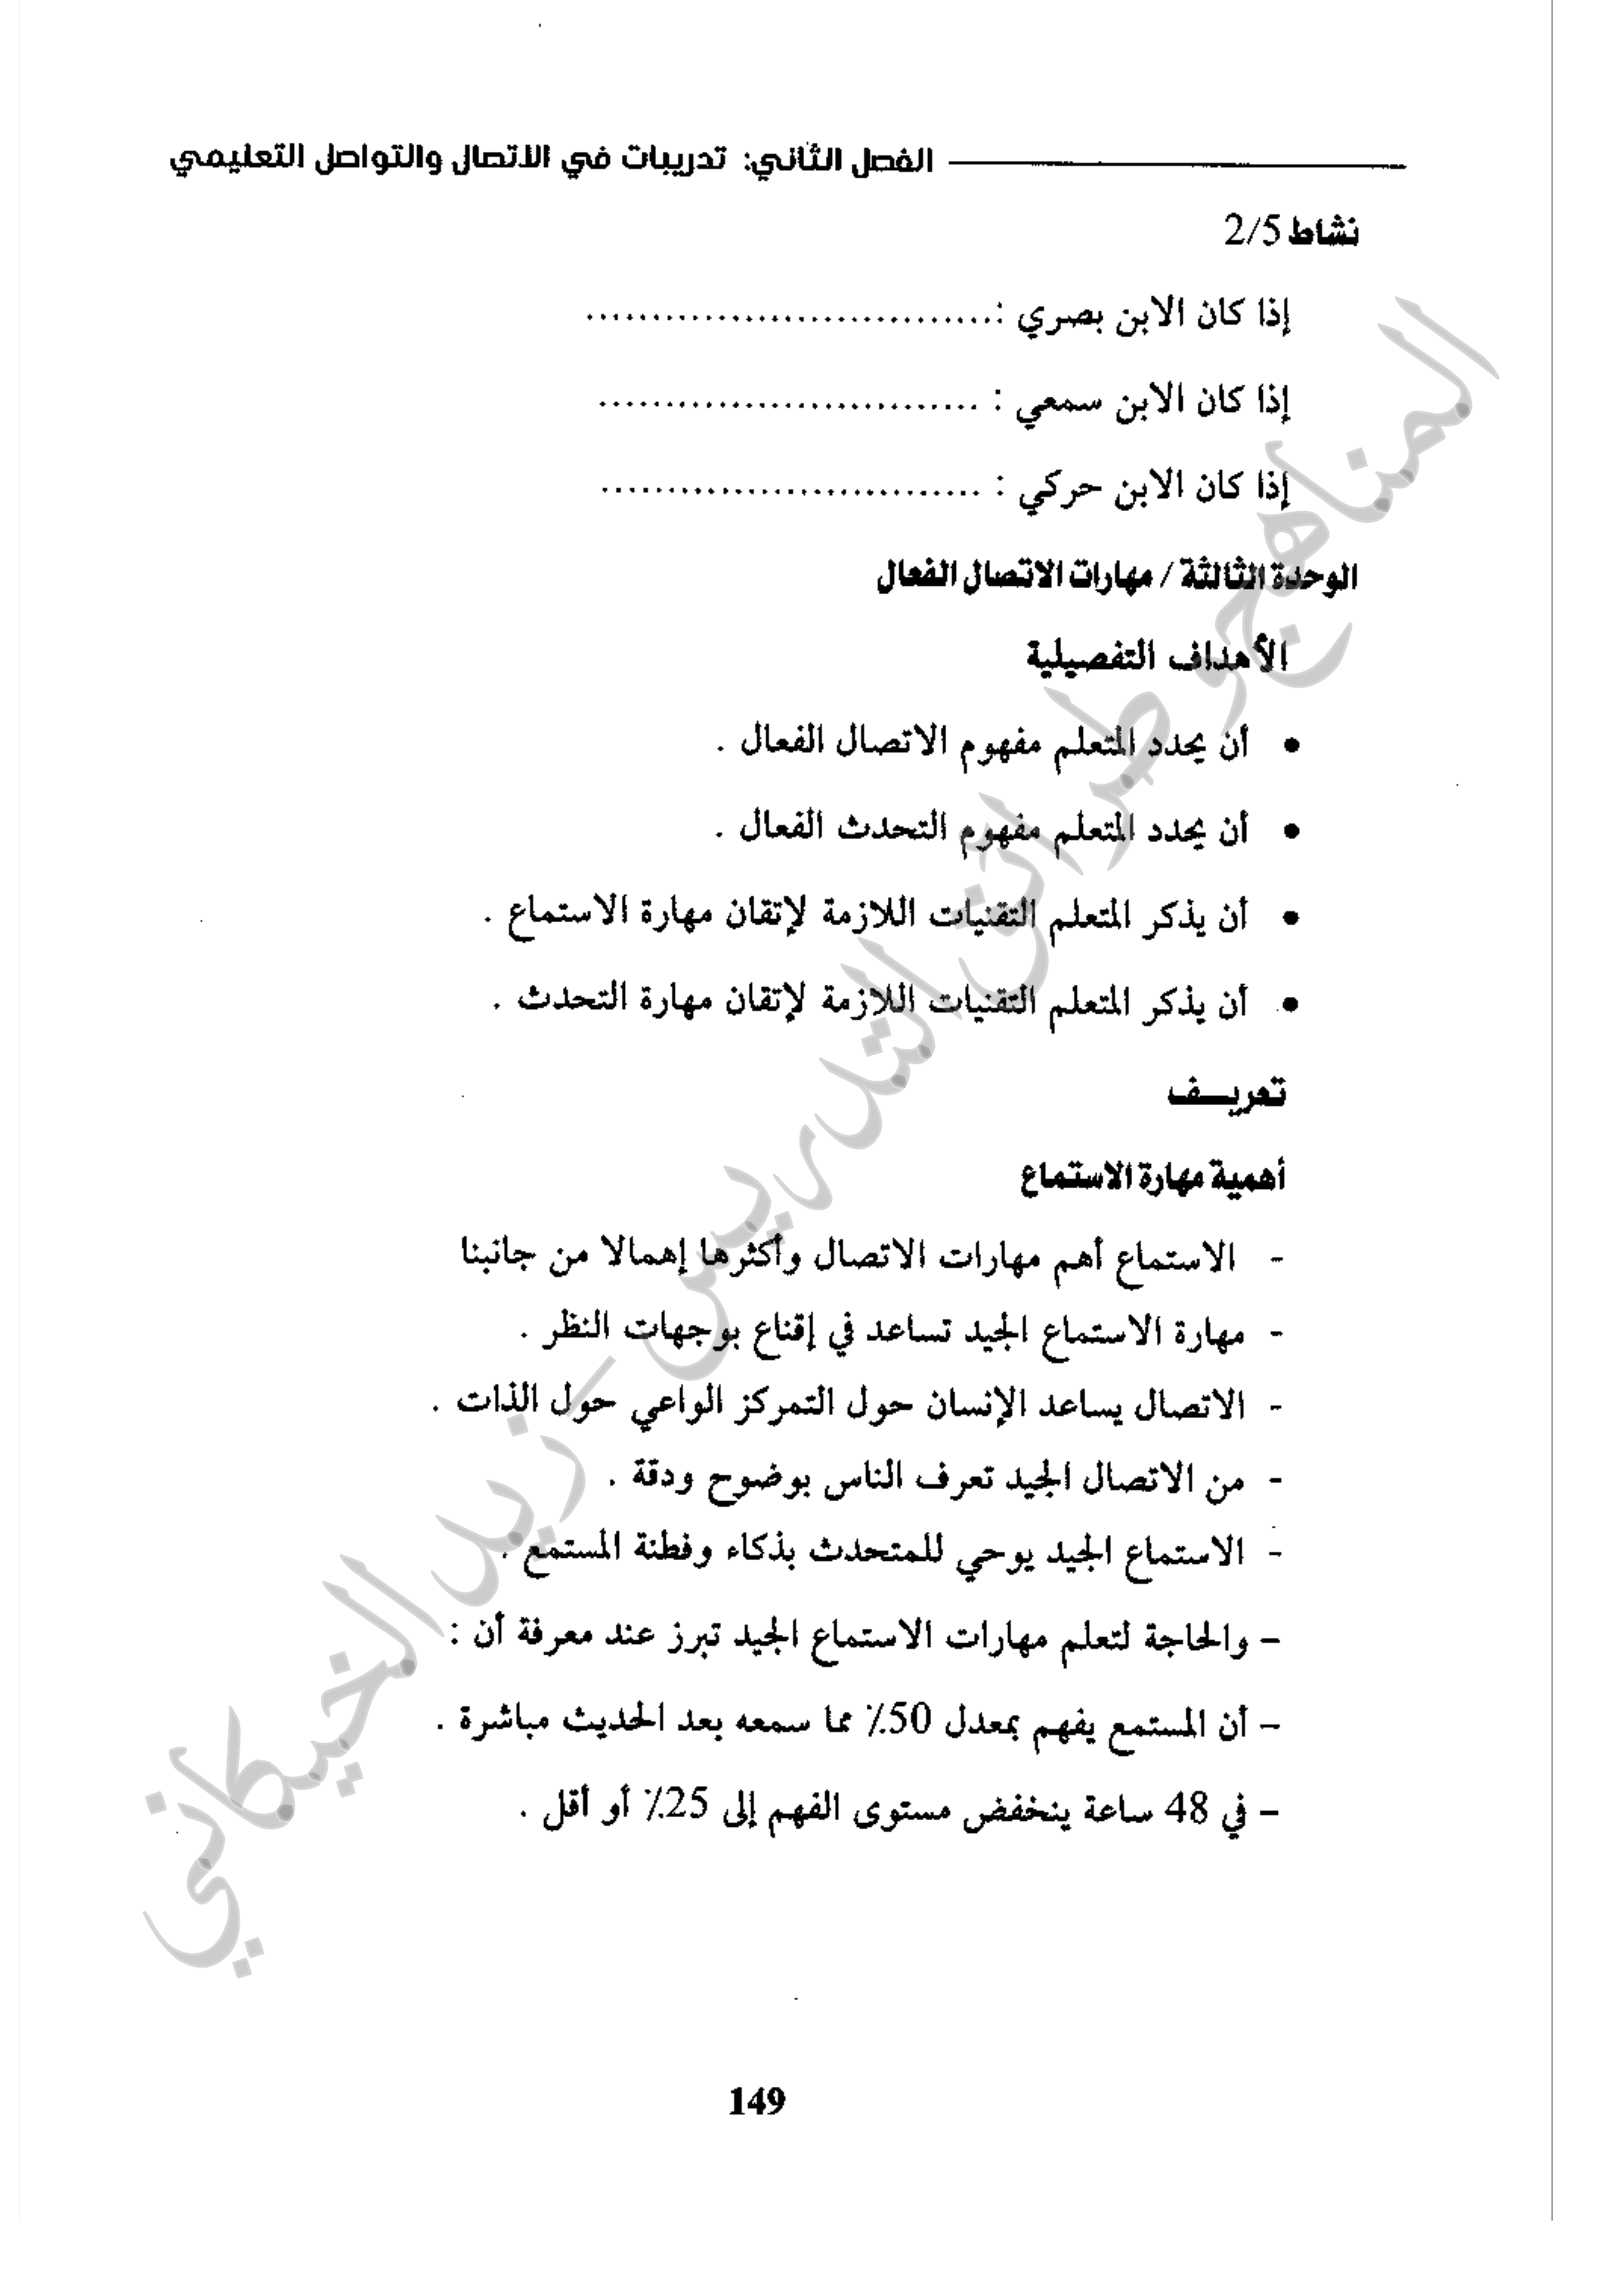 الفصل الثاني: تدريبات في الاتصال والتواصل التعليمي
نشاط 2/5
إذا كان الابن بصري :...............................
إذا كان الابن سمعي : .............................
إذا كان الابن حركي : .............................
الوحدة الثالثة / مهارات الاتصال الفعال
الأهداف التفصيلية
• أن يحدد المتعلم مفهوم الاتصال الفعال .
• أن يحدد المتعلم مفهوم التحدث الفعال .
• أن يذكر المتعلم التقنيات اللازمة لإتقان مهارة الاستماع .
• أن يذكر المتعلم التقنيات اللازمة لإتقان مهارة التحدث .
تعريـــف
أهمية مهارة الاستماع
- الاستماع أهم مهارات الاتصال وأكثرها إهمالا من جانبنا
- مهارة الاستماع الجيد تساعد في إقناع بوجهات النظر .
- الاتصال يساعد الإنسان حول التمركز الواعي حول الذات .
- من الاتصال الجيد تعرف الناس بوضوح ودقة .
- الاستماع الجيد يوحي للمتحدث بذكاء وفطنة المستمع .
– والحاجة لتعلم مهارات الاستماع الجيد تبرز عند معرفة أن :
– أن المستمع يفهم بمعدل 50٪ مما سمعه بعد الحديث مباشرة .
– في 48 ساعة ينخفض مستوى الفهم إلى 25٪ أو أقل .
149
المناهج وطرائق التدريس - زيد الخيكاني